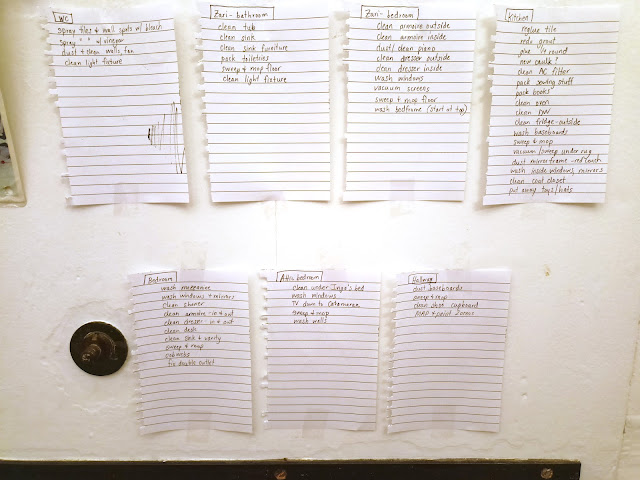 WC
spray tiles & wall spots w/ bleach
spray " " w/ vinegar
dust & clean walls, fan
clean light fixture
Zari - bathroom
clean tub
clean sink
clean sink furniture
pack toiletries
sweep & mop floor
clean light fixture
Zari - bedroom
clean armoire outside
clean armoire inside
dust/clean piano
clean dresser outside
clean dresser inside
wash windows
vacuum screens
sweep & mop floor
wash bedframe (start at top)
Kitchen
reglue tile
redo grout
glue 1/4 round
new caulk?
clean AC filter
pack sewing stuff
pack books
clean oven
clean DW
clean fridge - outside
wash baseboards
sweep & mop
vacuum/sweep under rug
dust mirror frame - retouch
wash inside windows, mirrors
clean coat closet
put away toys/hats
Bedroom
wash mezzanine
wash windows & mirrors
clean shower
clean armoire - in & out
clean dresser in & out
clean desk
clean sink & vanity
sweep & mop
cobwebs
fix double outlet
Attic bedroom
clean under Inga's bed
wash windows
TV down to
sweep & mop
wash walls
Hallway
dust baseboards
sweep & mop
clean shoe cupboard
& paint